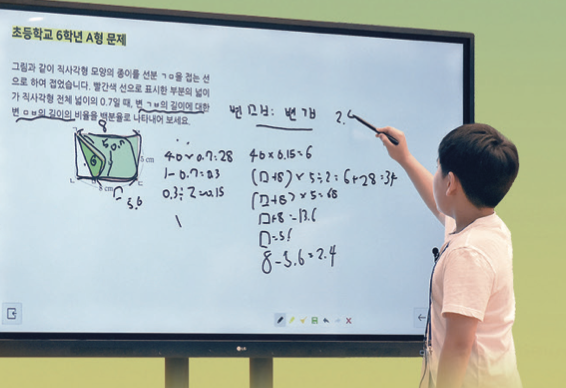 초등학교 6학년 A형 문제
그림과 같이 직사각형 모양의 종이를 선분 ㄱㅁ을 접는 선
으로 하여 접었습니다. 빨간색 선으로 표시한 부분의 넓이
가 직사각형 전체 넓이의 0.7일 때, 변 ㄱㅂ의 길이에 대한
변 ㅁㅂ의 길이의 비율을 백분율로 나타내어 보세요.
8
6
5 cm
8 cm
3.6
40×0.7=28
1-0.7=0.3
0.3÷2=0.15
40×0.15=6
(□+8)×5÷2=6+28=34
(□+8)×5=68
□+8=13.6
8-5.6=2.4
LG